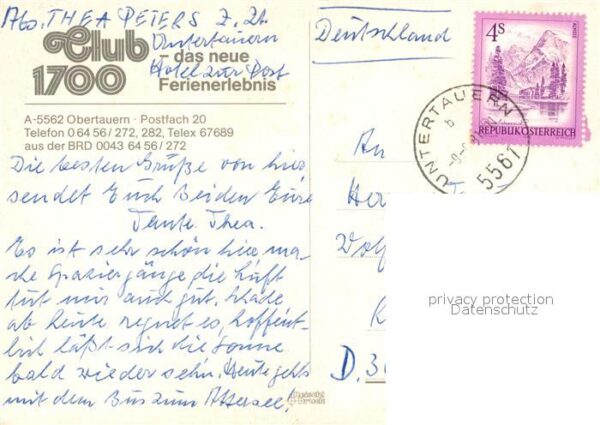 Abs. THEA PETERS z. Zt.
Untertauern
Hotel zur Post
Club 1700
– das neue
Ferienerlebnis
A-5562 Obertauern · Postfach 20
Telefon 0 64 56 / 272, 282, Telex 67689
aus der BRD 0043 64 56 / 272
Die besten Grüße von hier
sendet Euch beiden Eure
Tante Thea.
Es ist sehr schön hier ma-
che Spaziergänge die Luft
tut mir auch gut. Schade
ab heute regnet es, hoffent-
lich läßt sich die Sonne
bald wieder sehn. Heute gehts
mit dem Bus zum Attersee!
Deutschland
4S
REPUBLIK ÖSTERREICH
UNTERTAUERN
b
5561
An
Her
Wolf
D. 3
privacy protection
Datenschutz